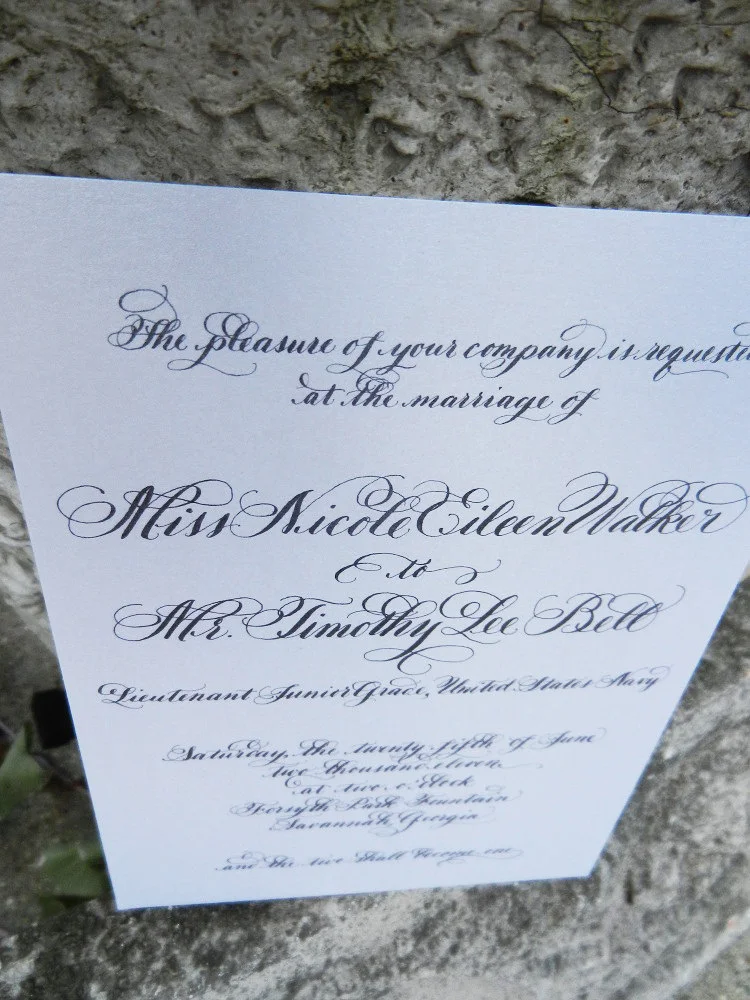 The pleasure of your company is requested
at the marriage of
Miss Nicole Eileen Walker
to
Mr. Timothy Lee Bell
Lieutenant Junior Grade, United States Navy
Saturday, the twenty-fifth of June
two thousand eleven
at two o'clock
Forsyth Park Fountain
Savannah Georgia
and the two shall become one